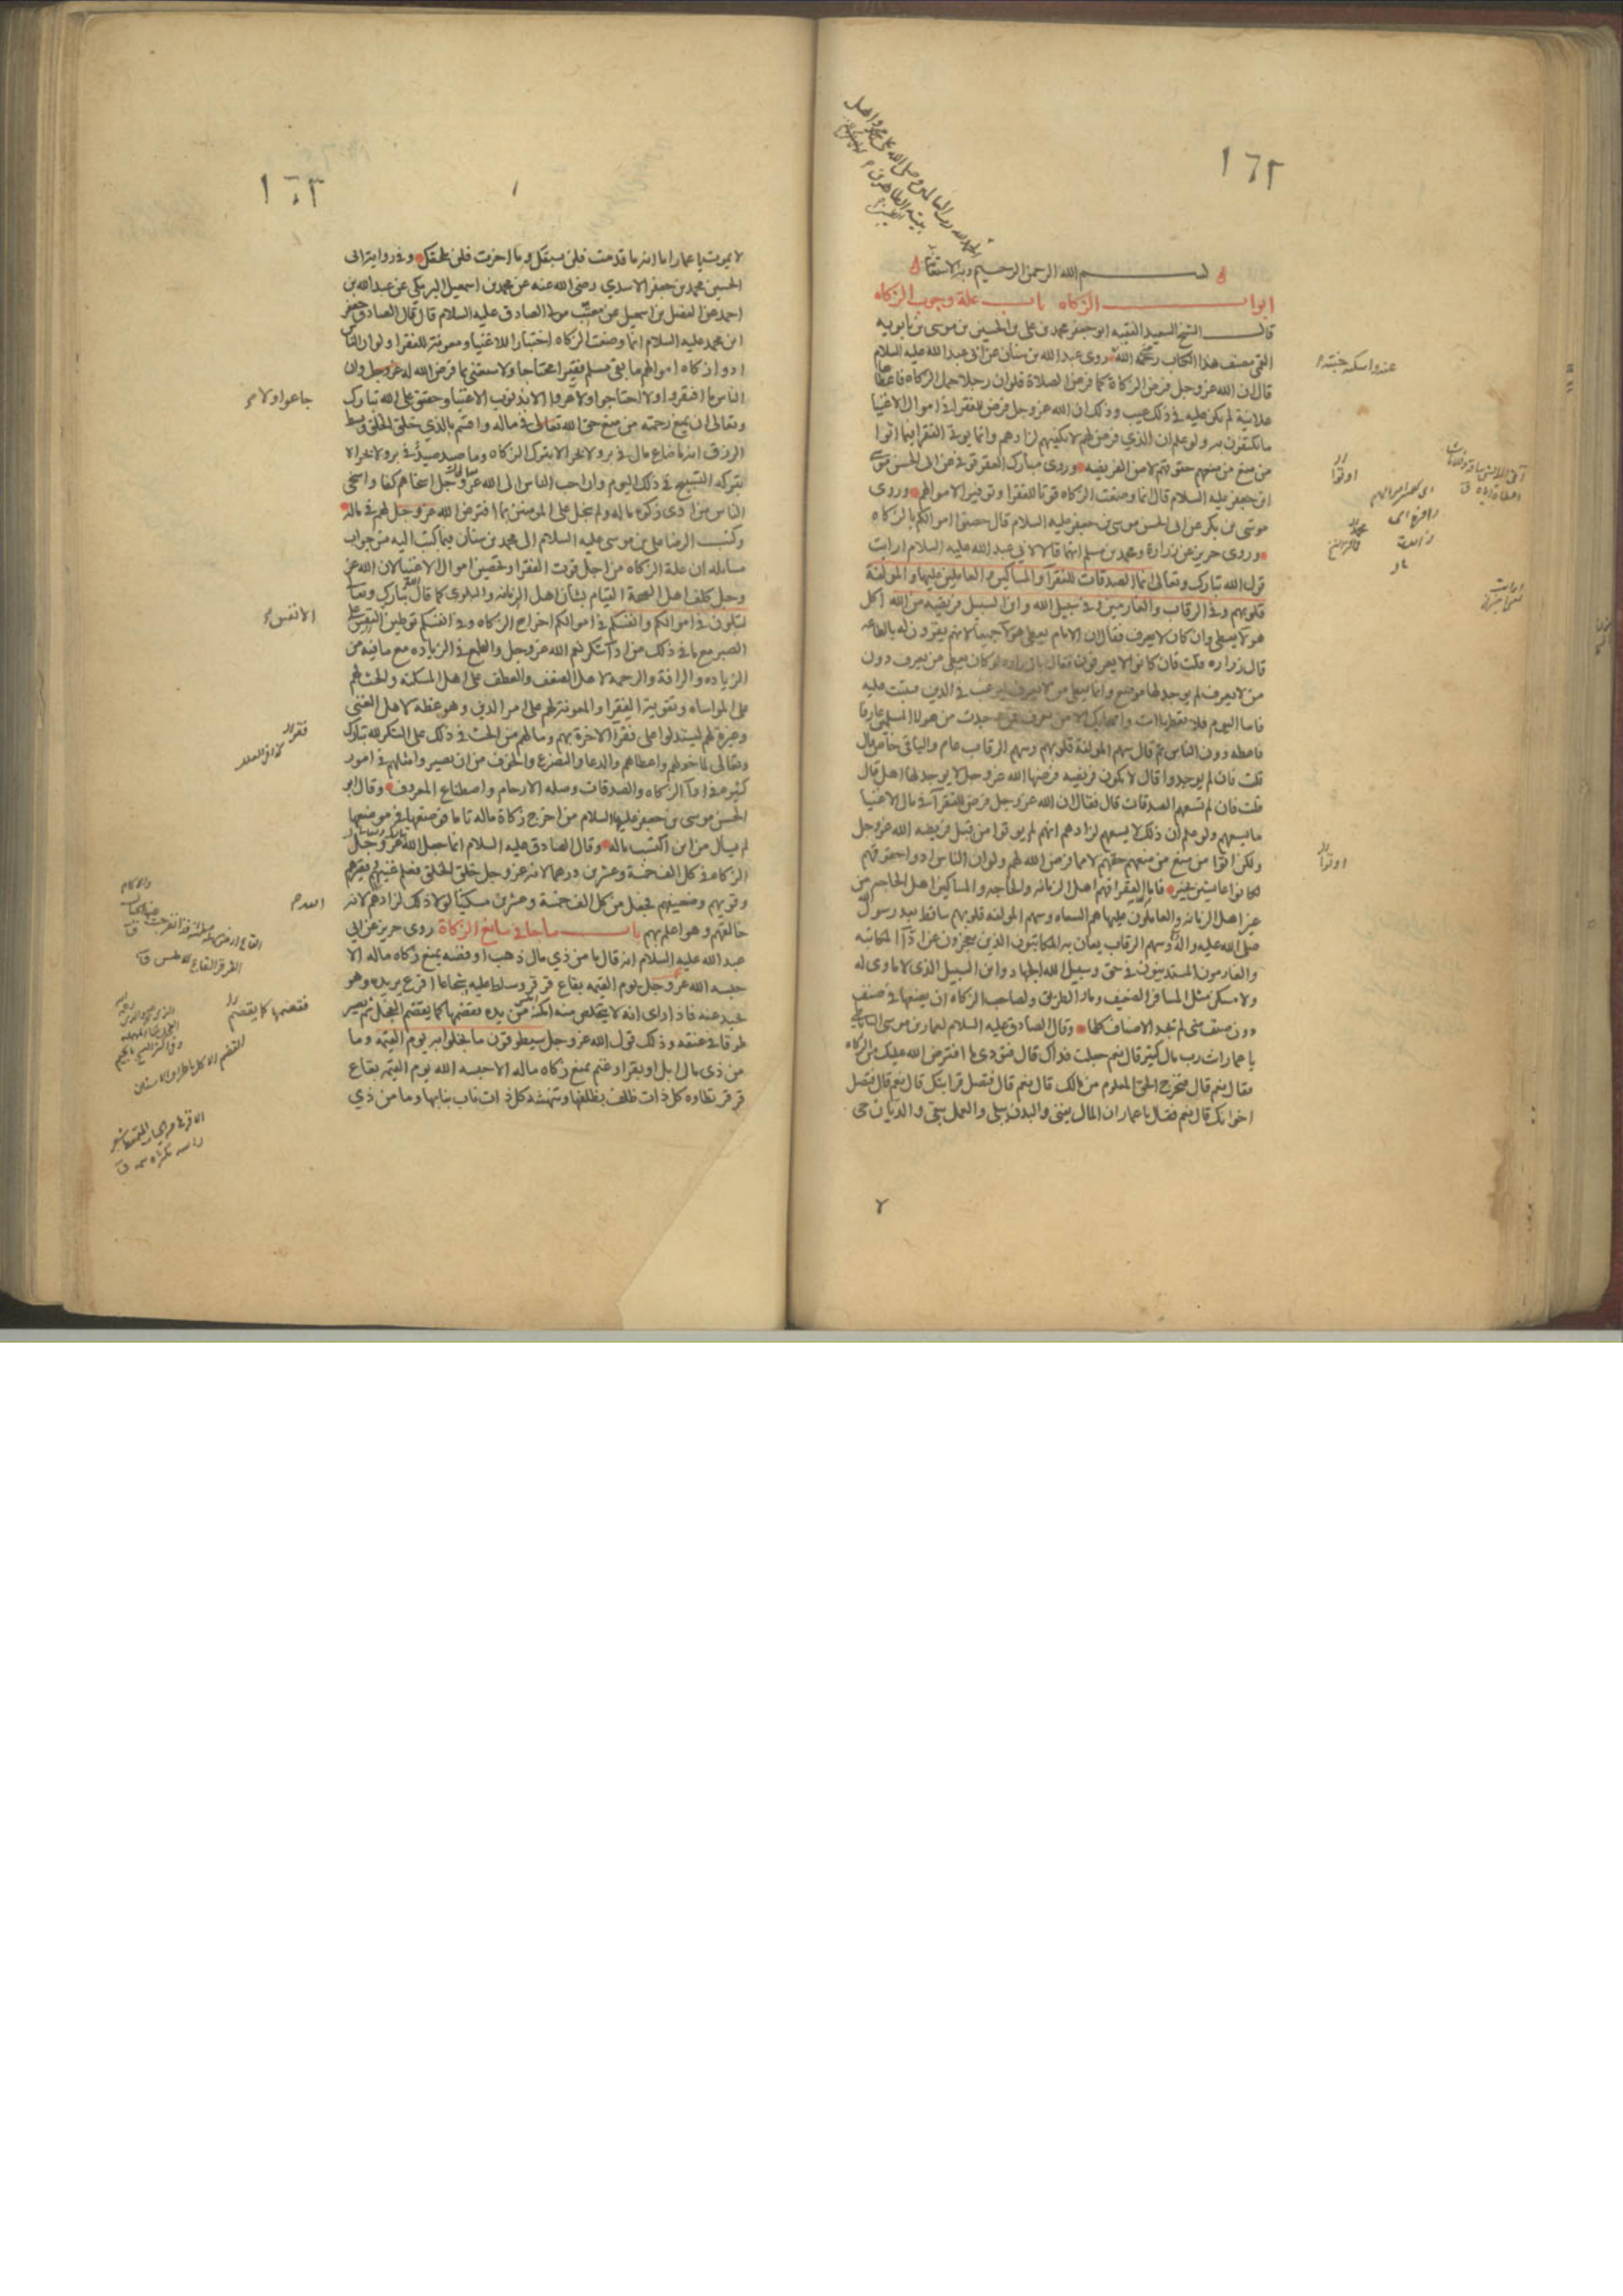 ١٦٢
بسم الله الرحمن الرحيم وبه الاستعانة
ابواب الزكاه باب علة وجوب الزكاه
قال الشيخ السعيد الفقيه ابو جعفر محمد بن على بن الحسين بن موسى بن بابويه
القمى مصنف هذا الكتاب رحمه الله روى عبد الله بن سنان عن ابى عبد الله عليه السلام
قال ان الله عز وجل فرض الزكاة كما فرض الصلاة فلو ان رجلا حمل الزكاه فاعطاها
علانية لم يكن عليه فى ذلك عيب وذلك ان الله عز وجل فرض للفقرا فى اموال الاغنيا
ما يكتفون به ولو علم ان الذي فرض لهم لا يكفيهم لزادهم وانما يوتى الفقرا فيما اتوا
من منع من منعهم حقوقهم لا من الفريضه وروى مبارك العقرقوفى عن ابى الحسن موسى
ابن جعفر عليه السلام قال انما وضعت الزكاه قوتا للفقرا وتوفيرا لاموالهم وروى
موسى بن بكر عن ابى الحسن موسى بن جعفر عليه السلام قال حصنوا اموالكم بالزكاه
وروى حريز عن زرارة ومحمد بن مسلم انهما قالا لابي عبد الله عليه السلام ارايت
قول الله تبارك وتعالى انما الصدقات للفقرآ والمساكين والعاملين عليها والمولفة
قلوبهم وفى الرقاب والغارمين وفى سبيل الله وابن السبيل فريضة من الله اكل
هولا يعطى وان كان لا يعرف فقال ان الامام يعطى هولآ جميعا لانهم يقرون له بالطاعه
قال زراره قلت فان كانوا لا يعرفون فقال يا زراره لو كان يعطى من يعرف دون
من لا يعرف لم يوجد لها موضع وانما يعطى من لا يعرف ليرغب فى الدين فيثبت عليه
فاما اليوم فلا تعطها انت واصحابك الا من يعرف فمن وجدت من هولا المسلمين عارفا
فاعطه دون الناس ثم قال سهم المولفة قلوبهم وسهم الرقاب عام والباقى خاص قال
قلت فان لم يوجدوا قال لا يكون فريضه فرضها الله عز وجل لا يوجد لها اهل قال
قلت فان لم تسعهم الصدقات قال فقال ان الله عز وجل فرض للفقرآ فى مال الاغنيا
ما يسعهم ولو علم ان ذلك لا يسعهم لزادهم انهم لم يوتوا من قبل فريضه الله عز وجل
ولكن اتوا من منع من منعهم حقهم لا مما فرض الله لهم ولو ان الناس ادوا حقوقهم
لكانوا عايشين بخير فاما الفقرا فهم اهل الزمانه والحاجه والمساكين اهل الحاجه من
غير اهل الزمانه والعاملون عليها هم السعاه وسهم المولفه قلوبهم ساقط بعد رسول الله
صلى الله عليه واله وسهم الرقاب يعان به المكاتبون الذين يعجزون عن ادآ المكاتبه
والغارمون المستدينون فى حق وسبيل الله الجهاد وابن السبيل الذى لا ماوى له
ولا مسكن مثل المسافر الضعيف ومار الطريق ولصاحب الزكاه ان يضعها فى صنف
دون صنف متى لم يجد الاصناف كلها وقال الصادق عليه السلام لعمار بن موسى الساباطي
يا عمار انت رب مال كثير قال نعم جعلت فداك قال فتودى ما افترض الله عليك من الزكاه
فقال نعم قال فتخرج الحق المعلوم من مالك قال نعم قال فتصل قرابتك قال نعم قال فتصل
اخوانك قال نعم فقال يا عمار ان المال يفنى والبدن يبلى والعمل يبقى والديان حى
اوتوا
اوتوا
١٦٣
لا يموت يا عمار اما انه ما قدمت فلن يسبقك وما اخرت فلن يلحقك وفى رواية ابى
الحسين محمد بن جعفر الاسدي رضى الله عنه عن محمد بن اسمعيل البرمكي عن عبد الله بن
احمد عن الفضل بن اسمعيل عن معتب مولى الصادق عليه السلام قال قال الصادق جعفر
ابن محمد عليه السلام انما وضعت الزكاه اختبارا للاغنيا ومعونة للفقرا ولو ان الناس
ادوا زكاه اموالهم ما بقى مسلم فقيرا محتاجا ولاستغنى بما فرض الله له عز وجل وان
الناس ما افتقروا ولا احتاجوا ولا عروا الا بذنوب الاغنيا وحقيق على الله تبارك
وتعالى ان يمنع رحمته من منع حق الله تعالى فى ماله واقسم بالذي خلق الخلق وبسط
الرزق انه ما ضاع مال فى بر ولا بحر الا بترك الزكاه وما صيد صيد فى بر ولا بحر الا
بتركه التسبيح فى ذلك اليوم وان احب الناس الى الله عز وجل اسخاهم كفا واسخى
الناس من ادى زكوه ماله ولم يبخل على المومنين بما افترض الله عز وجل لهم فى ماله
وكتب الرضا على بن موسى عليه السلام الى محمد بن سنان فيما كتب اليه من جواب
مسايله ان علة الزكاه من اجل قوت الفقرا وتحصين اموال الاغنيا لان الله عز
وجل كلف اهل الصحة القيام بشان اهل الزمانه والبلوى كما قال تبارك وتعالى
لتبلون فى اموالكم وانفسكم فى اموالكم اخراج الزكاه وفى انفسكم توطين النفس على
الصبر مع ما فى ذلك من ادآ شكر نعم الله عز وجل والطمع فى الزياده مع ما فيه من
الزياده والرافة والرحمة لاهل الضعف والعطف على اهل المسكنه والحث لهم
على المواساه وتقوية الفقرا والمعونة لهم على امر الدين وهو عظة لاهل الغنى
وعبرة لهم ليستدلوا على فقرا الاخرة بهم وما لهم من الحث فى ذلك على الشكر لله تبارك
وتعالى لما خولهم واعطاهم والدعا والتضرع والخوف من ان يصيروا مثلهم فى امور
كثيره فى ادآ الزكاه والصدقات وصله الارحام واصطناع المعروف وقال ابو
الحسن موسى بن جعفر عليهما السلام من اخرج زكاة ماله تاما فوضعها فى موضعها
لم يسأل من اين اكتسب ماله وقال الصادق عليه السلام انما جعل الله عز وجل
الزكاه فى كل الف خمسة وعشرين درهما لانه عز وجل خلق الخلق فعلم غنيهم وفقيرهم
وقويهم وضعيفهم فجعل من كل الف خمسة وعشرين مسكينا لولا ذلك لزادهم لانه
خالقهم وهو اعلم بهم باب ما جا فى مانع الزكاة روى حريز عن ابي
عبد الله عليه السلام انه قال ما من ذي مال ذهب او فضه يمنع زكاه ماله الا
حبسه الله عز وجل يوم القيمه بقاع قرقر وسلط عليه شجاعا اقرع يريده وهو
يحيد عنه فاذا راى انه لا يتخلص منه امكنه من يده فقضمها كما يقضم الفجل ثم يصير
طوقا فى عنقه وذلك قول الله عز وجل سيطوقون ما بخلوا به يوم القيمه وما
من ذى مال ابل او بقر او غنم يمنع زكاه ماله الا حبسه الله يوم القيمه بقاع
قرقر تطاوه كل ذات ظلف بظلفها وتنهشه كل ذات ناب بنابها وما من ذي
جاعوا ولا
الانفس
فقضمها كما يقضم